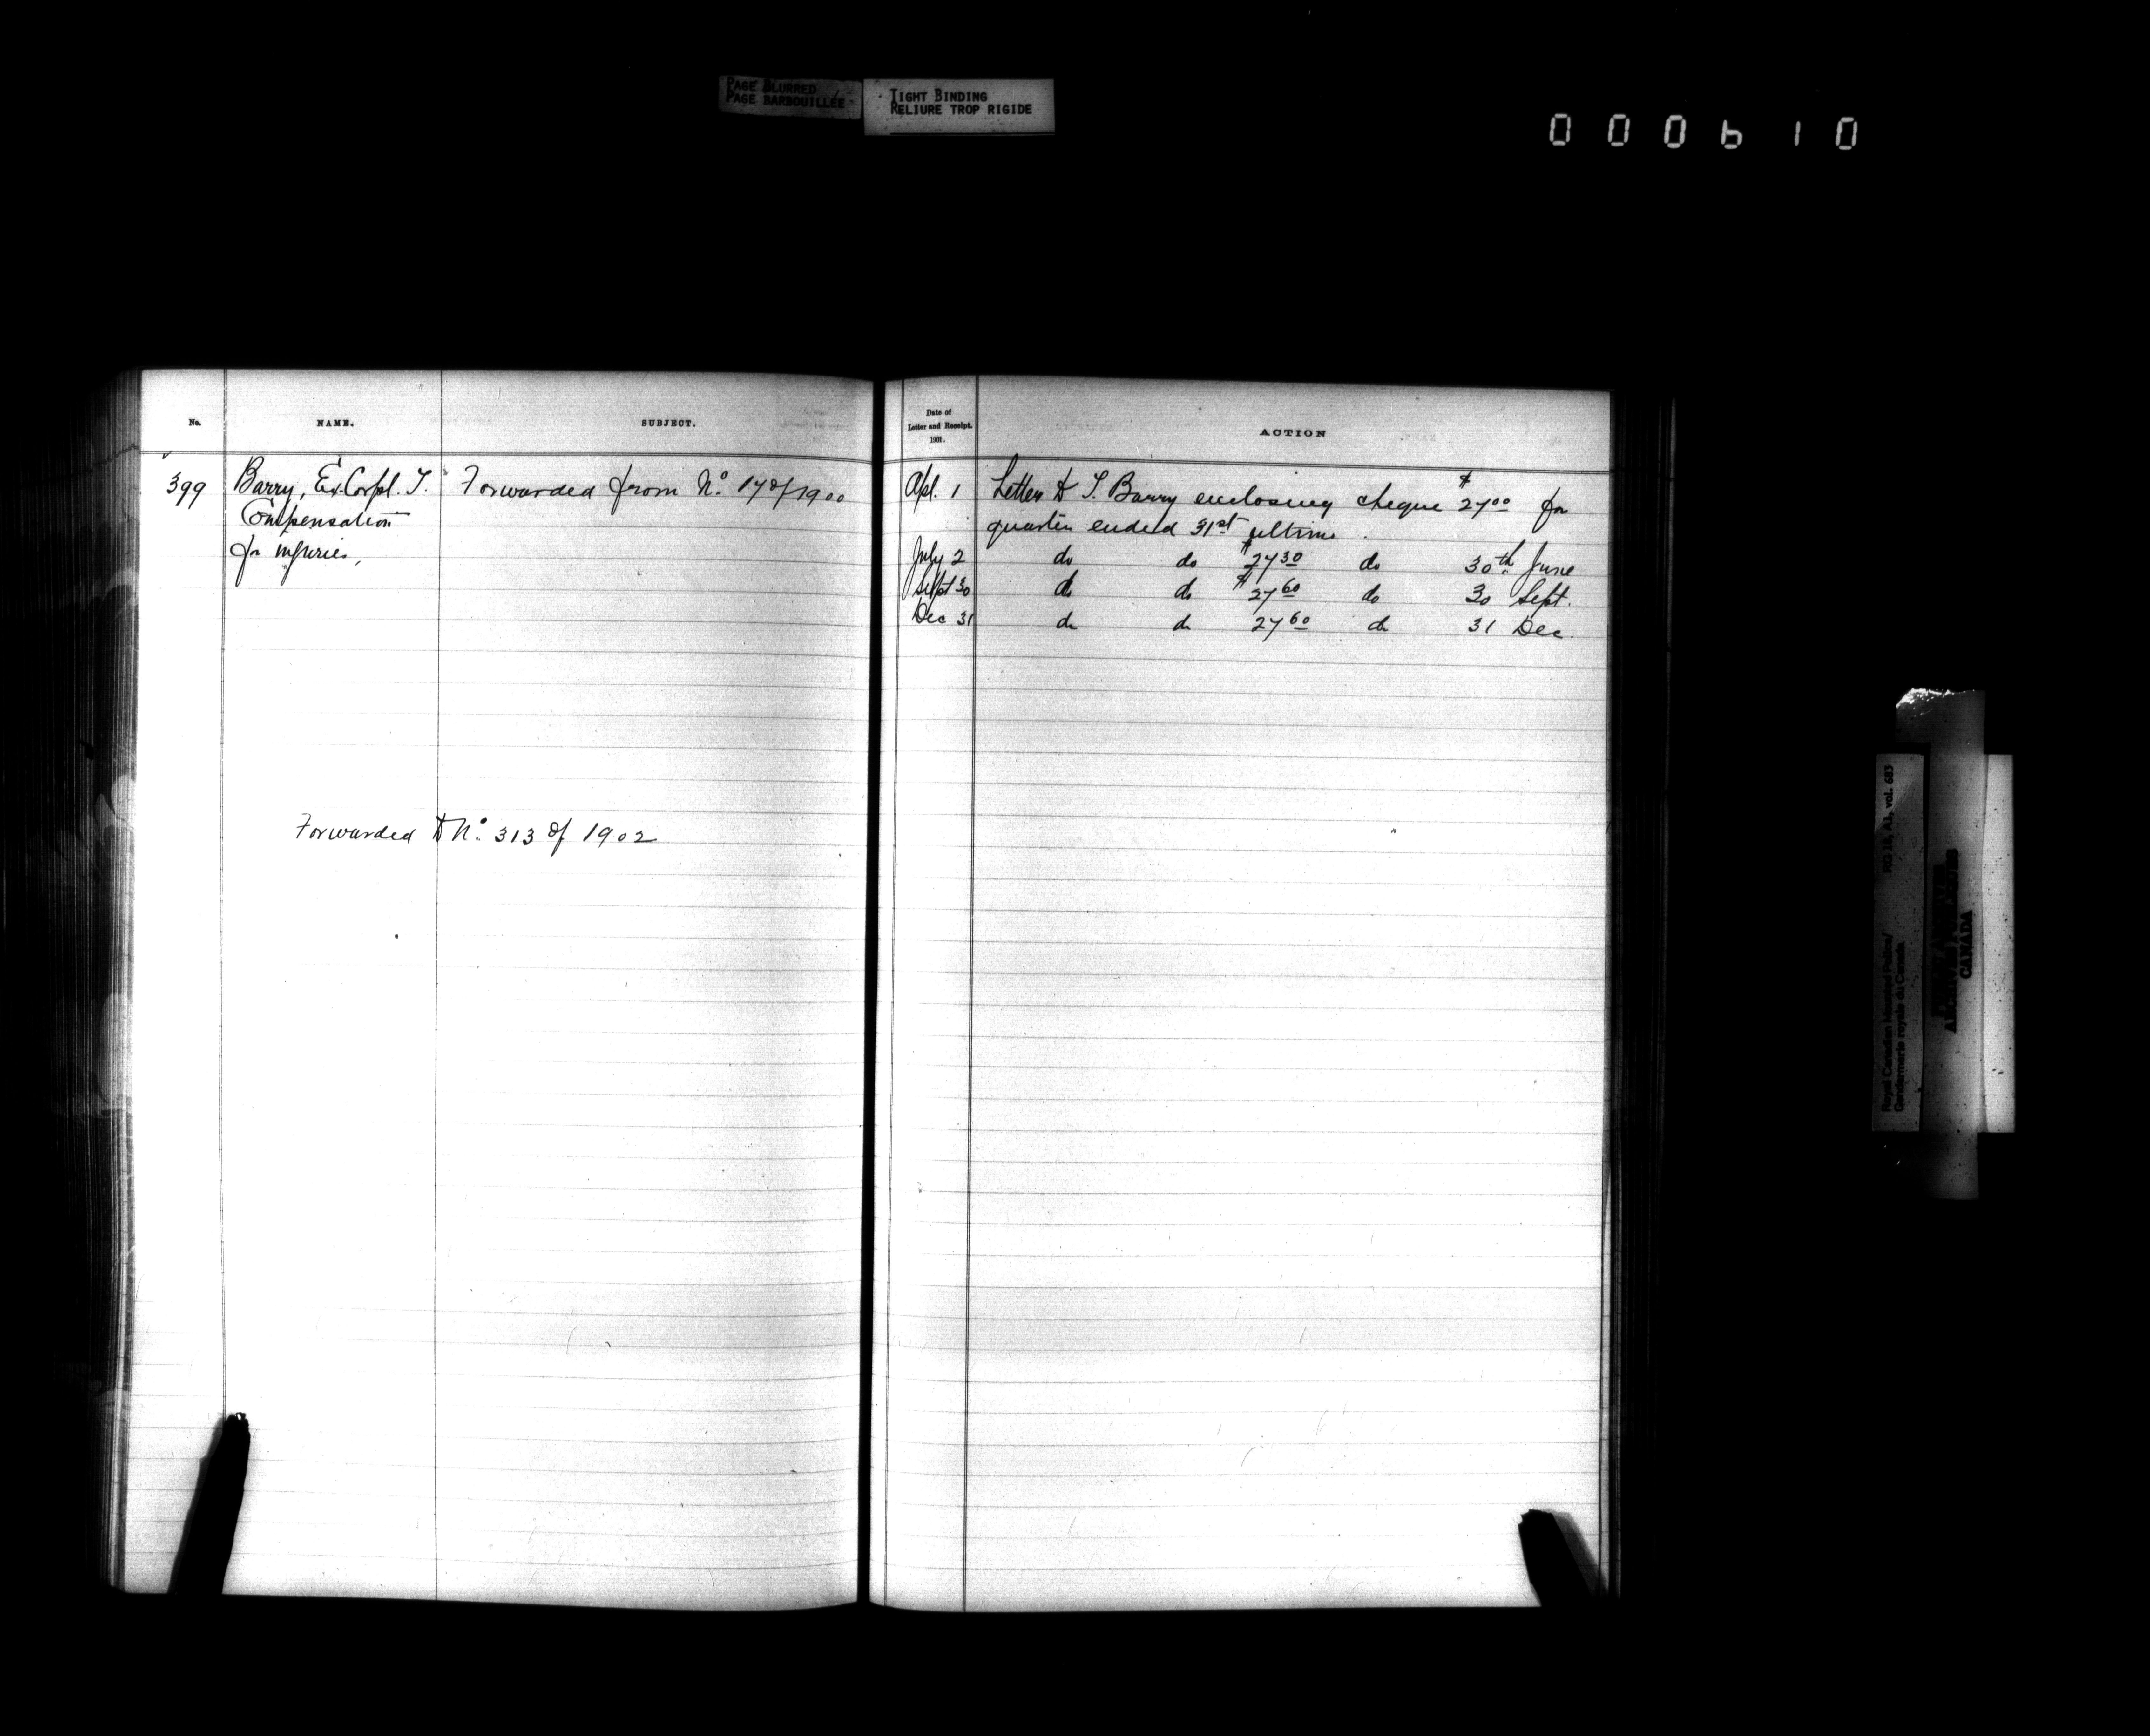 PAGE BLURRED
PAGE BARBOUILLÉE
TIGHT BINDING
RELIURE TROP RIGIDE
000610
No.
NAME.
SUBJECT.
Date of
Letter and Receipt.
1901.
ACTION
399 Barry, Ex. Corpl. T. Forwarded from No. 17 of 1900
Compensation
for injuries,
Forwarded to No. 313 of 1902
Apl. 1 Letter to T. Barry enclosing cheque $27.00 for
quarter ended 31st ultimo.
July 2 do do $27.30 do 30th June
Sept 30 do do $27.60 do 30 Sept.
Dec 31 do do 27.60 do 31 Dec.
Royal Canadian Mounted Police/
Gendarmerie royale du Canada
RG 18, A1, vol. 683
CANADA